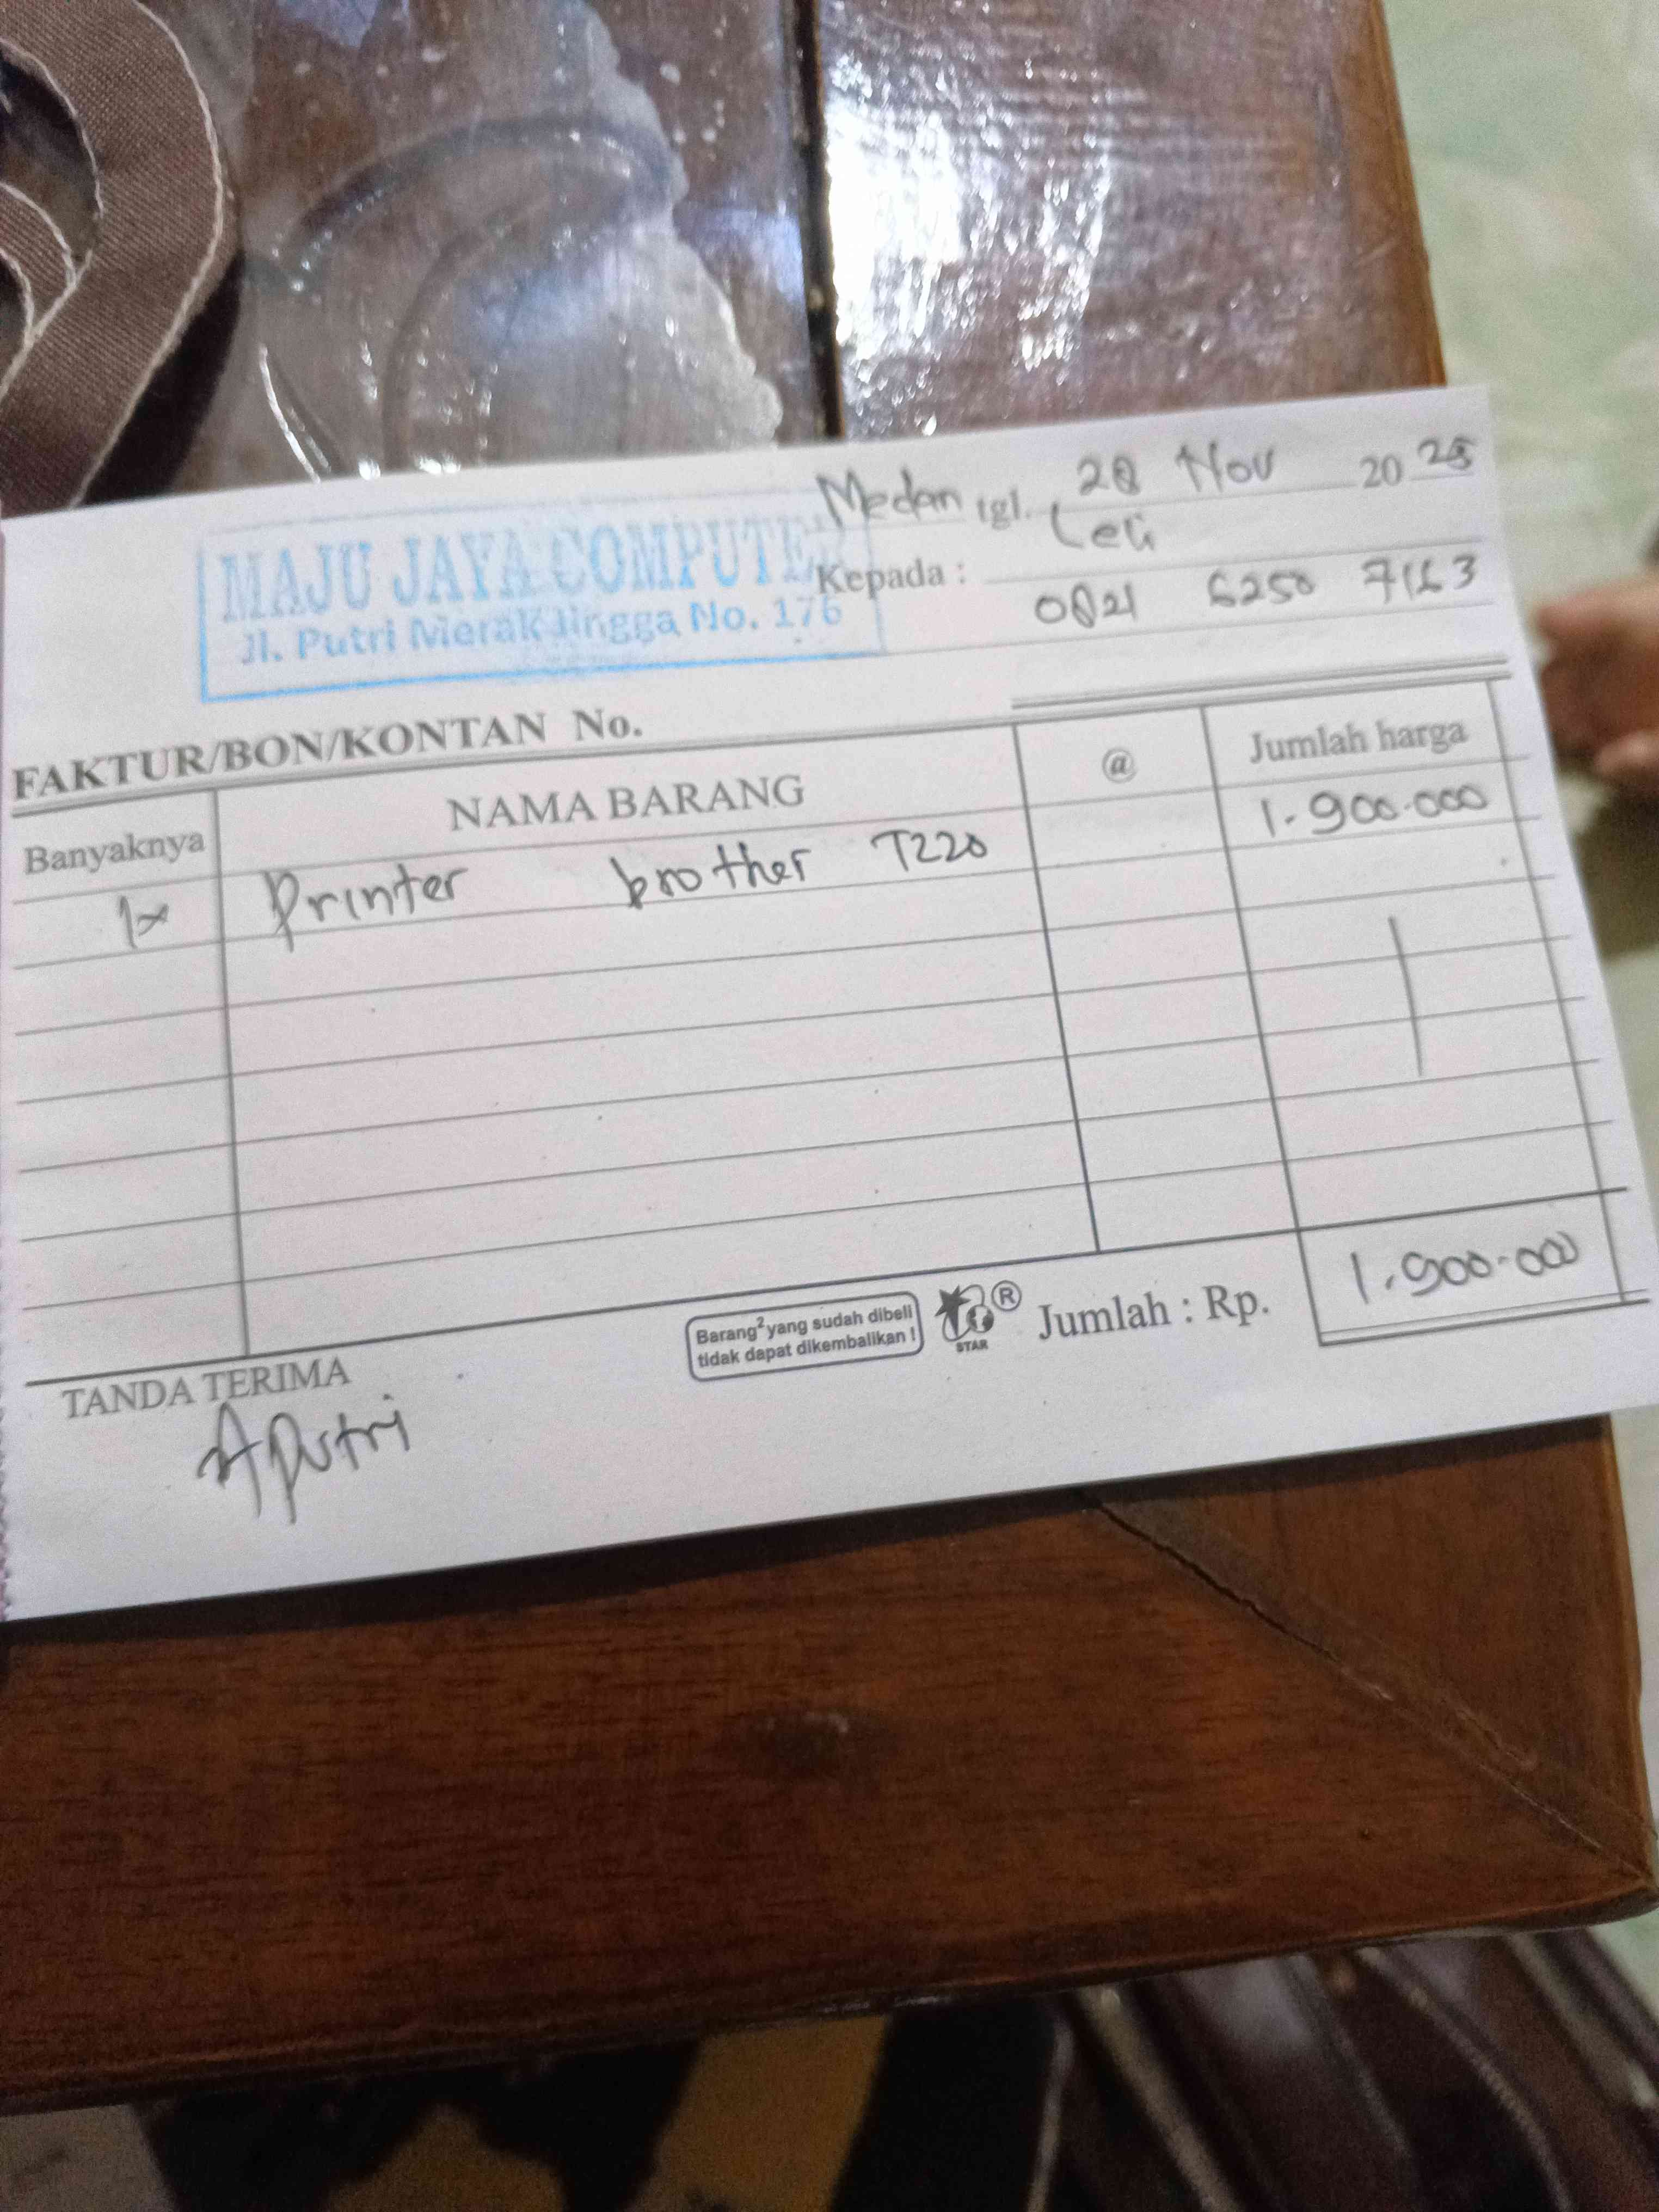 Medan tgl. 28 Nov 2025
MAJU JAYA COMPUTER
Jl. Putri Merak Jingga No. 176
Kepada : Leli
0821 6250 7163
FAKTUR/BON/KONTAN No.
Banyaknya NAMA BARANG @ Jumlah harga
1x Printer brother T220 1.900.000
Barang² yang sudah dibeli
tidak dapat dikembalikan !
STAR ® Jumlah : Rp. 1.900.000
TANDA TERIMA
Aputri